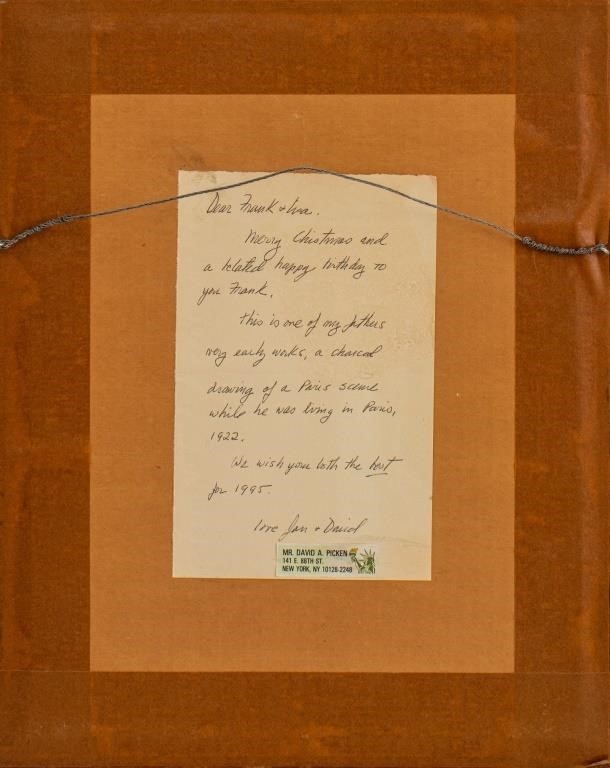 Dear Frank + Iva.
Merry Christmas and
a belated happy birthday to
you Frank.
This is one of my fathers
very early works, a charcoal
drawing of a Paris scene
while he was living in Paris,
1922.
We wish you both the best
for 1995.
Love Jan + David
MR. DAVID A. PICKEN
141 E. 88TH ST.
NEW YORK, NY 10128-2248